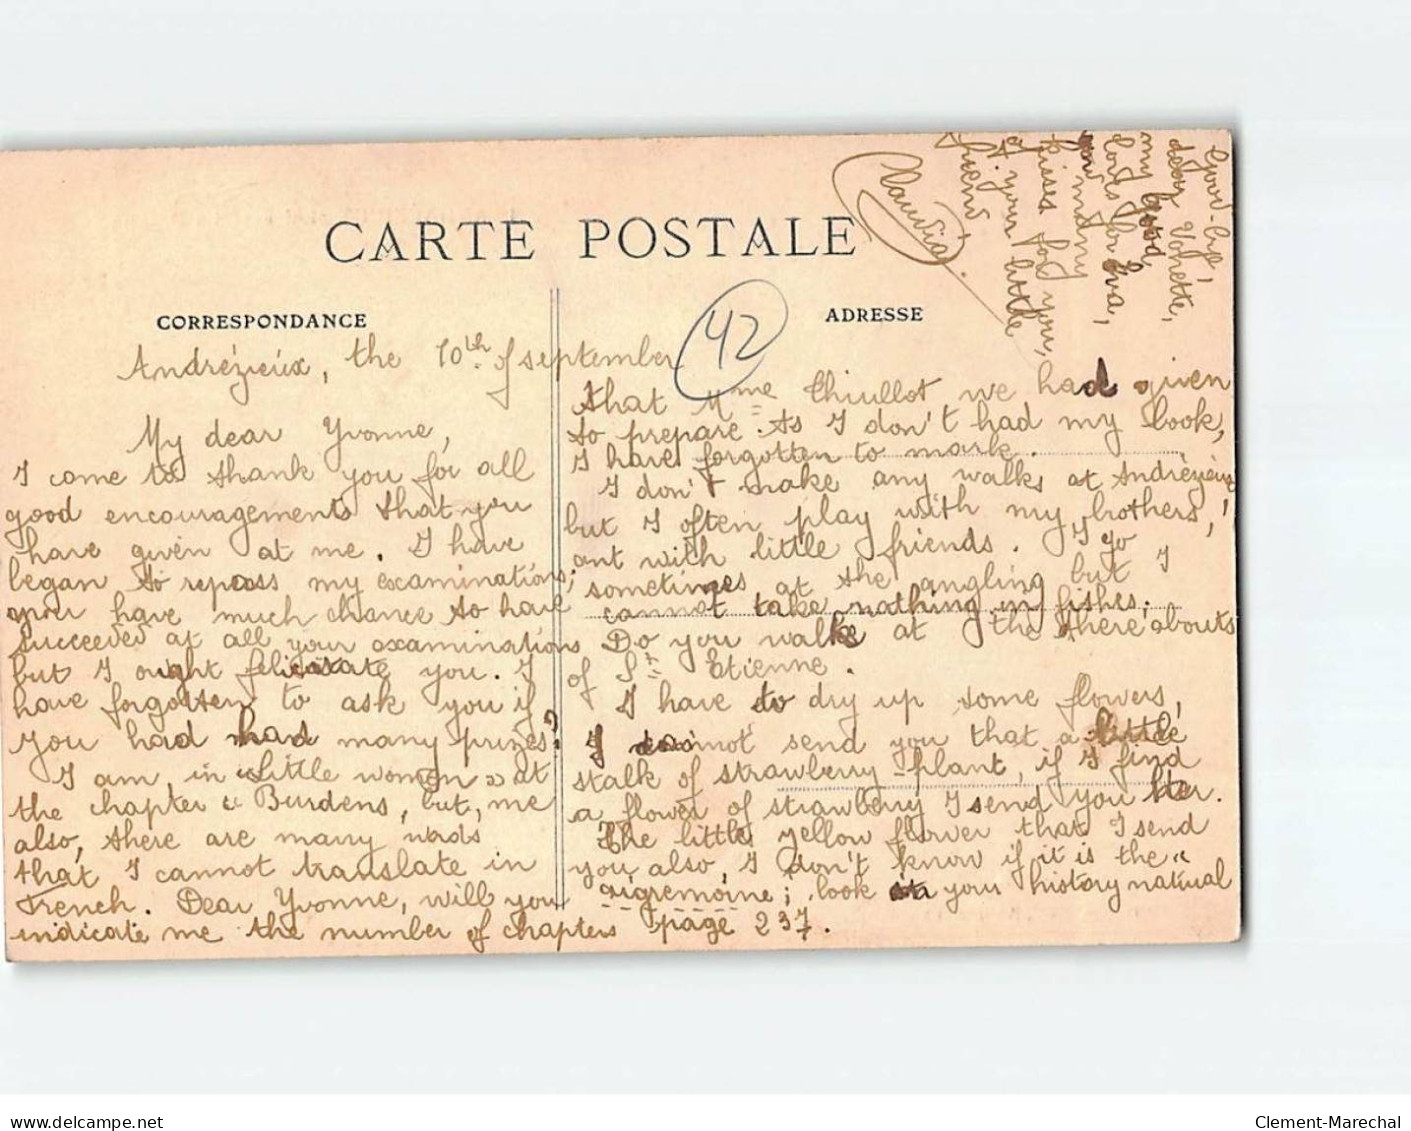 CARTE POSTALE
CORRESPONDANCE
ADRESSE
42
Andrézieux, the 10th of september
My dear Yvonne,
I come to thank you for all
good encouragements that you
have given at me. I have
began to repass my examinations;
your have much chance to have
succeeded at all your examinations
but I ought felicitate you. I
have forgotten to ask you if
you had had many prizes?
I am, in "Little women" at
the chapter "Burdens, but, me
also, there are many words
that I cannot translate in
French. Dear Yvonne, will you
indicate me the number of chapters
that Mme Thiullot we had given
to prepare. As I don't had my book,
I have forgotten to mark.
I don't make any walks at Andrézieux
but I often play with my brothers,
ant with little friends. I go
sometimes at the angling but I
cannot take nothing in fishes.
Do you walk at the thereabouts
of St Etienne.
I have to dry up some flowers,
I cannot send you that a little
stalk of strawberry-plant, if I find
a flower of strawberry I send you her.
The little yellow flower that I send
you also, I don't know if it is the "
aigremoine; look your history natural
page 237.
Good-bye,
dear Vonette,
my good
loves for Eva,
and many
kisses for you,
of your little
friend,
Claudia.
Clement-Marechal
www.delcampe.net